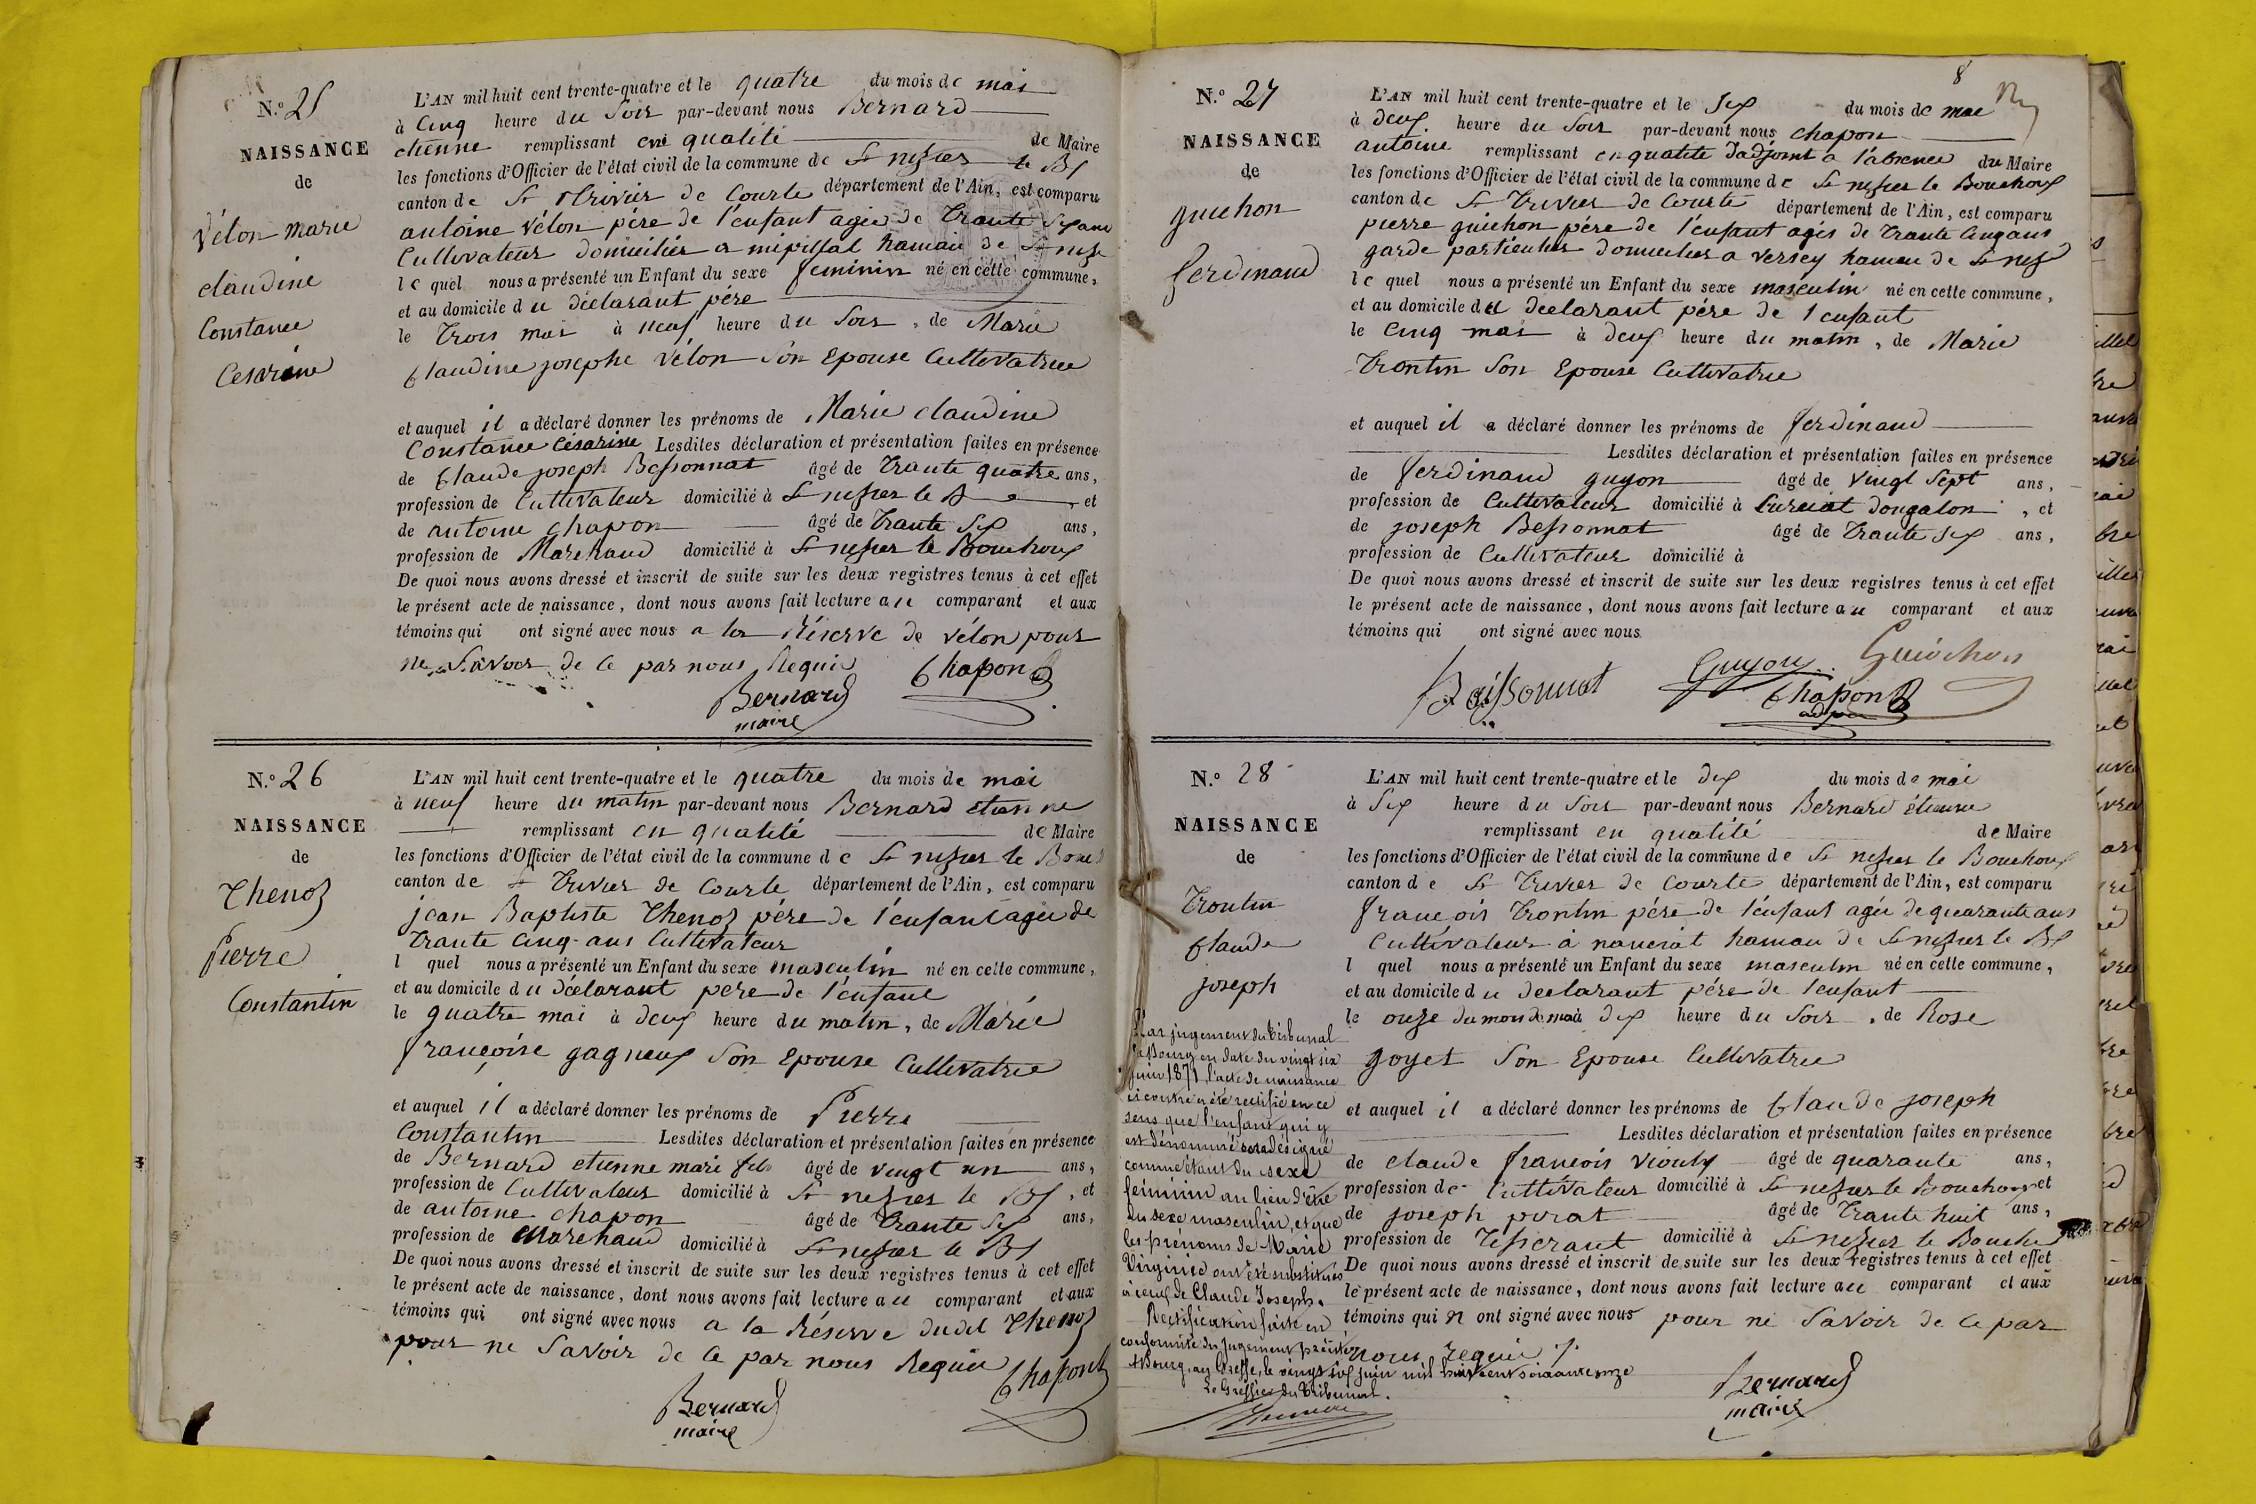 N.º 25
NAISSANCE
de
Vélon marie
claudine
Constance
Cesarine
L'AN mil huit cent trente-quatre et le quatre du mois de mai
à Cinq heure du Soir par-devant nous Bernard
etienne remplissant en qualité de Maire
les fonctions d'Officier de l'état civil de la commune de St nizier le Bx
canton de St trivier de Courte département de l'Ain, est comparu
antoine Vélon pére de l'enfant agée de trante Six ans
Cultivateur domicilier a mépillat hamau de St niz
le quel nous a présenté un Enfant du sexe feminin né en cette commune,
et au domicile du déclarant pére
le trois mai à neuf heure du Soir, de Marie
Claudine josephe Vélon Son Epouse Cultivatrice
et auquel il a déclaré donner les prénoms de Marie claudine
Constance Césarine Lesdites déclaration et présentation faites en présence
de Claude joseph Bessonnat âgé de trante quatre ans,
profession de Cultivateur domicilié à St nizier le B et
de antoine chapon âgé de trante Six ans,
profession de Marchand domicilié à St nizier le Bouchoux
De quoi nous avons dressé et inscrit de suite sur les deux registres tenus à cet effet
le présent acte de naissance, dont nous avons fait lecture au comparant et aux
témoins qui ont signé avec nous a la Réserve de vélon pour
ne Savoir de ce par nous Requis Chapon
Bernard
maire
N.º 26
NAISSANCE
de
Thenoz
Pierre
Constantin
L'AN mil huit cent trente-quatre et le quatre du mois de mai
à neuf heure du matin par-devant nous Bernard etienne
remplissant en qualité de Maire
les fonctions d'Officier de l'état civil de la commune de St nizier le Bouch
canton de St Trivier de Courte département de l'Ain, est comparu
jean Baptiste Thenoz pére de l'enfant agée de
trante Cinq ans Cultivateur
l quel nous a présenté un Enfant du sexe masculin né en cette commune,
et au domicile du déclarant pere de l'enfant
le quatre mai à deux heure du matin, de Marie
françoise gagneux Son Epouse Cultivatrice
et auquel il a déclaré donner les prénoms de Pierre
Constantin Lesdites déclaration et présentation faites en présence
de Bernard etienne marie fils âgé de vingt un ans,
profession de Cultivateur domicilié à St nizier le Bx, et
de antoine chapon âgé de trante Six ans,
profession de Marchand domicilié à St nizier le Bx
De quoi nous avons dressé et inscrit de suite sur les deux registres tenus à cet effet
le présent acte de naissance, dont nous avons fait lecture au comparant et aux
témoins qui ont signé avec nous a la Réserve dudit Thenoz
pour ne Savoir de ce par nous Requis Chapon
Bernard
maire
8
N.º 27
NAISSANCE
de
guichon
ferdinand
L'AN mil huit cent trente-quatre et le Six du mois de mai
à deux heure du Soir par-devant nous chapon
antoine remplissant en qualité d'adjoint a l'absence du Maire
les fonctions d'Officier de l'état civil de la commune de St nizier le Bouchoux
canton de St Trivier de Courte département de l'Ain, est comparu
pierre guichon pére de l'enfant agés de trante Cinq ans
garde particulier domicilier a versey hamau de St niz
le quel nous a présenté un Enfant du sexe masculin né en cette commune,
et au domicile du declarant pére de l'enfant
le Cinq mai à deux heure du matin, de Marie
trontin Son Epouse Cultivatrice
et auquel il a déclaré donner les prénoms de ferdinand
Lesdites déclaration et présentation faites en présence
de ferdinand guyon âgé de vingt Sept ans,
profession de Cultivateur domicilié à Curciat dongalon, et
de joseph Bessonnat âgé de trante Six ans,
profession de Cultivateur domicilié à
De quoi nous avons dressé et inscrit de suite sur les deux registres tenus à cet effet
le présent acte de naissance, dont nous avons fait lecture au comparant et aux
témoins qui ont signé avec nous
Baissonnat Guyon Guichon
Chapon
adj
N.º 28
NAISSANCE
de
Trontin
Claude
joseph
Par jugement du Tribunal
de Bourg en date du vingt six
juin 1871, l'acte de naissance
ci contre a été rectifié en ce
sens que l'enfant qui y
est dénommé sera désigné
comme étant du sexe
féminin au lieu d'être
du sexe masculin, et que
les prénoms de Marie
Virginie ont été substitués
à ceux de Claude Joseph.
Rectification faite en
conformité du jugement précité
à Bourg, au Greffe, le vingt six juin mil huit cent soixante onze
Le Greffier du Tribunal.
L'AN mil huit cent trente-quatre et le dix du mois de mai
à Six heure du Soir par-devant nous Bernard étienne
remplissant en qualité de Maire
les fonctions d'Officier de l'état civil de la commune de St nizier le Bouchoux
canton de St Trivier de Courte département de l'Ain, est comparu
françois trontin pére de l'enfant agée de quarante ans
Cultivateur à nanciat hamau de St nizier le Bx
l quel nous a présenté un Enfant du sexe masculin né en cette commune,
et au domicile du declarant pére de l'enfant
le onze du mois de mai à dix heure du Soir, de Rose
goyet Son Epouse Cultivatrice
et auquel il a déclaré donner les prénoms de Claude joseph
Lesdites déclaration et présentation faites en présence
de claude francois Vioully âgé de quarante ans,
profession de Cultivateur domicilié à St nizier le Bouchoux et
de joseph pirat âgé de trante huit ans,
profession de Tisserant domicilié à St nizier le Bouchoux
De quoi nous avons dressé et inscrit de suite sur les deux registres tenus à cet effet
le présent acte de naissance, dont nous avons fait lecture au comparant et aux
témoins qui n ont signé avec nous pour ne Savoir de ce par
nous requis
Bernard
maire